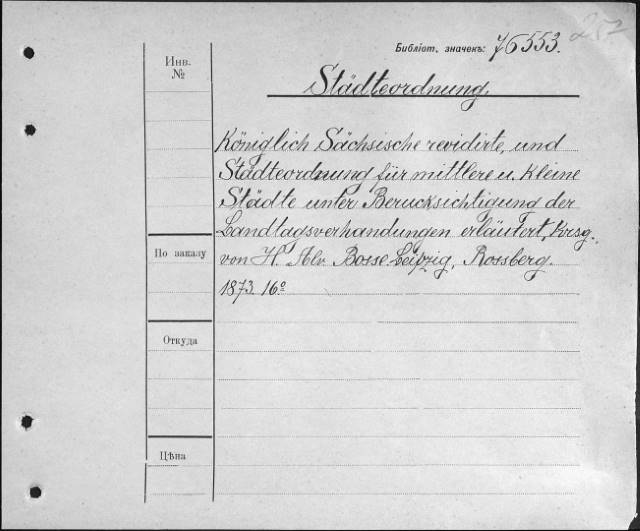 257
Библіот. значекъ: 76553.
Инв.
№
Städteordnung.
Königlich Sächsische revidirte, und
Städteordnung für mittlere u. Kleine
Städte unter Berucksichtigung der
Landtagsverhandungen erläutert, Hrsg.,
von H. Alv. Bosse Leipzig, Rossberg.
1873. 16º
По заказу
Откуда
Цѣна